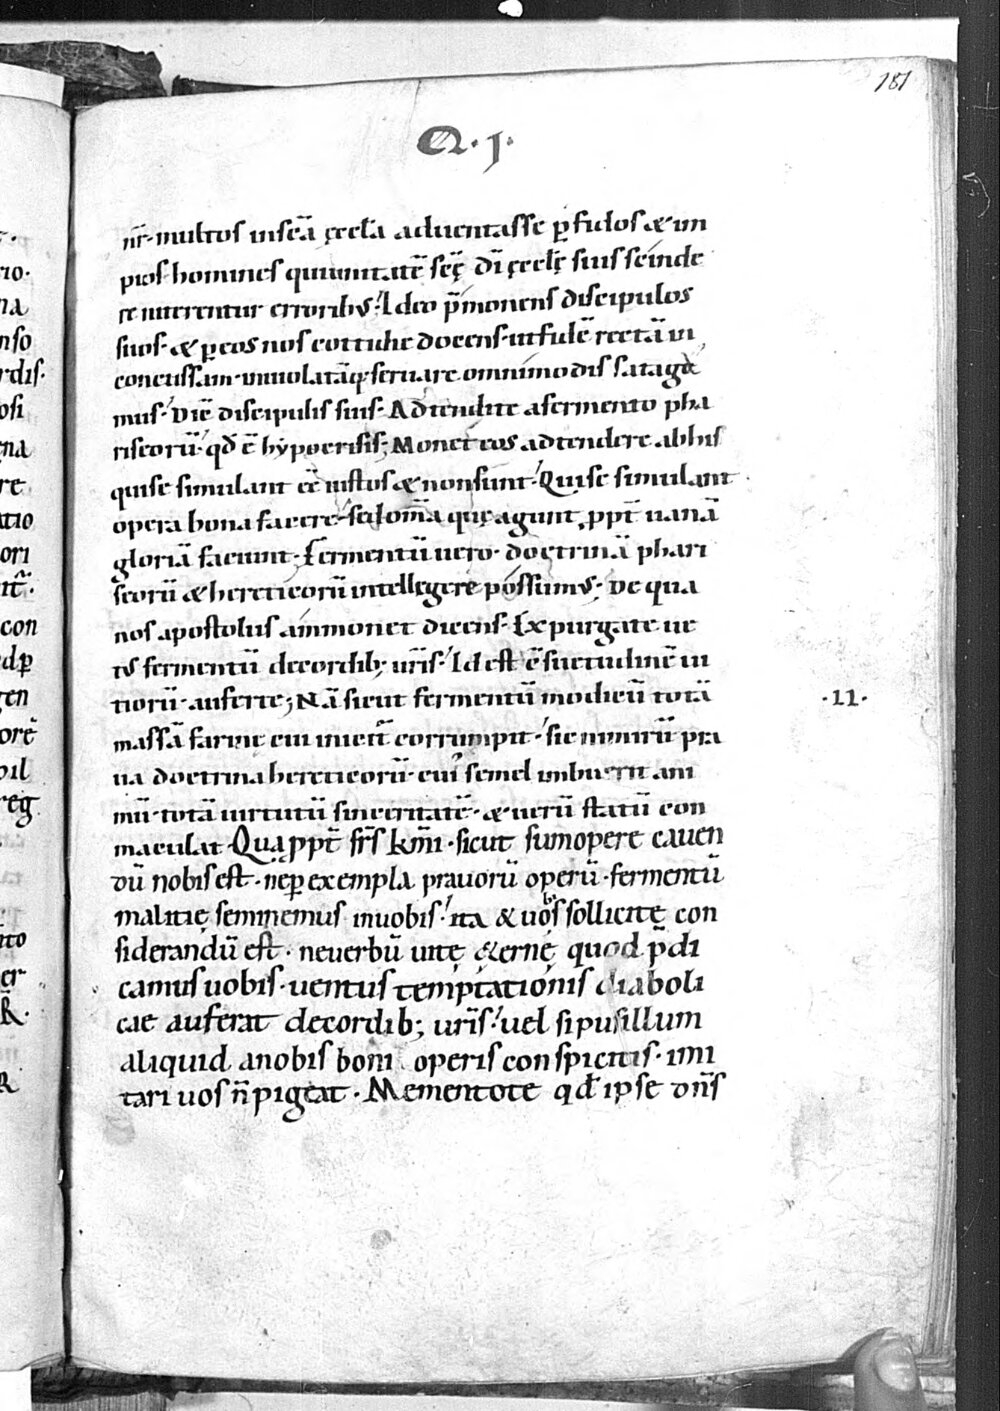 181
Q. J.
nr̄· multos in sc̄a ęccl̄a aduentasse ꝑfidos & im
pios· homines qui unitatē sc̄ę dī ęccl̄ę suis scinde
re niterentur erroribus· Ideo p̄monens discipulos
suos· & ꝑ eos nos cottidie docens· ut fidē rectā in
concussam· inuiolatāq; seruare omnimodis satage
mus· Dic̄ discipulis suis· Adtendite a fermento pha
riseorū· qđ ē hypocrisis; Monet eos adtendere ab his
qui se simulant eē iustos & non sunt· Qui se simulant
opera bona facere· sꝫ om̄a quę agunt, ꝓpt̄ uanā
gloriā faciunt· Fermentū uero· doctrinā phari
seorū & hereticorū intellegere possumus· De qua
nos apostolus ammonet dicens· Expurgate ue
tus fermentū de cordib; ur̄is· Id est c̄suetudinē ui
tiorū· auferte; Nā sicut fermentū modicū totā
·11·
massā farinę cui iniect̄ corrumpit· sic nimirū pra
ua doctrina hereticorū· cui semel imbuerit ani
mū· totā uirtutū sinceritatē· & uerū statū con
maculat· Quaꝓpt̄ fr̄s km̄i· sicut summopere cauen
dū nobis est· ne ꝑ exempla prauorū operū· fermentū
malitię seminemus in uobis· ita & uobis sollicite con
siderandū est· ne uerbū uitę &ernę quod p̄di
camus uobis· uentus temptationis diaboli
cae auferat de cordib; ur̄is· uel si pusillum
aliquid a nobis boni operis conspicitis· imi
tari uos n̄ pigeat· Mementote qđ ipse dn̄s